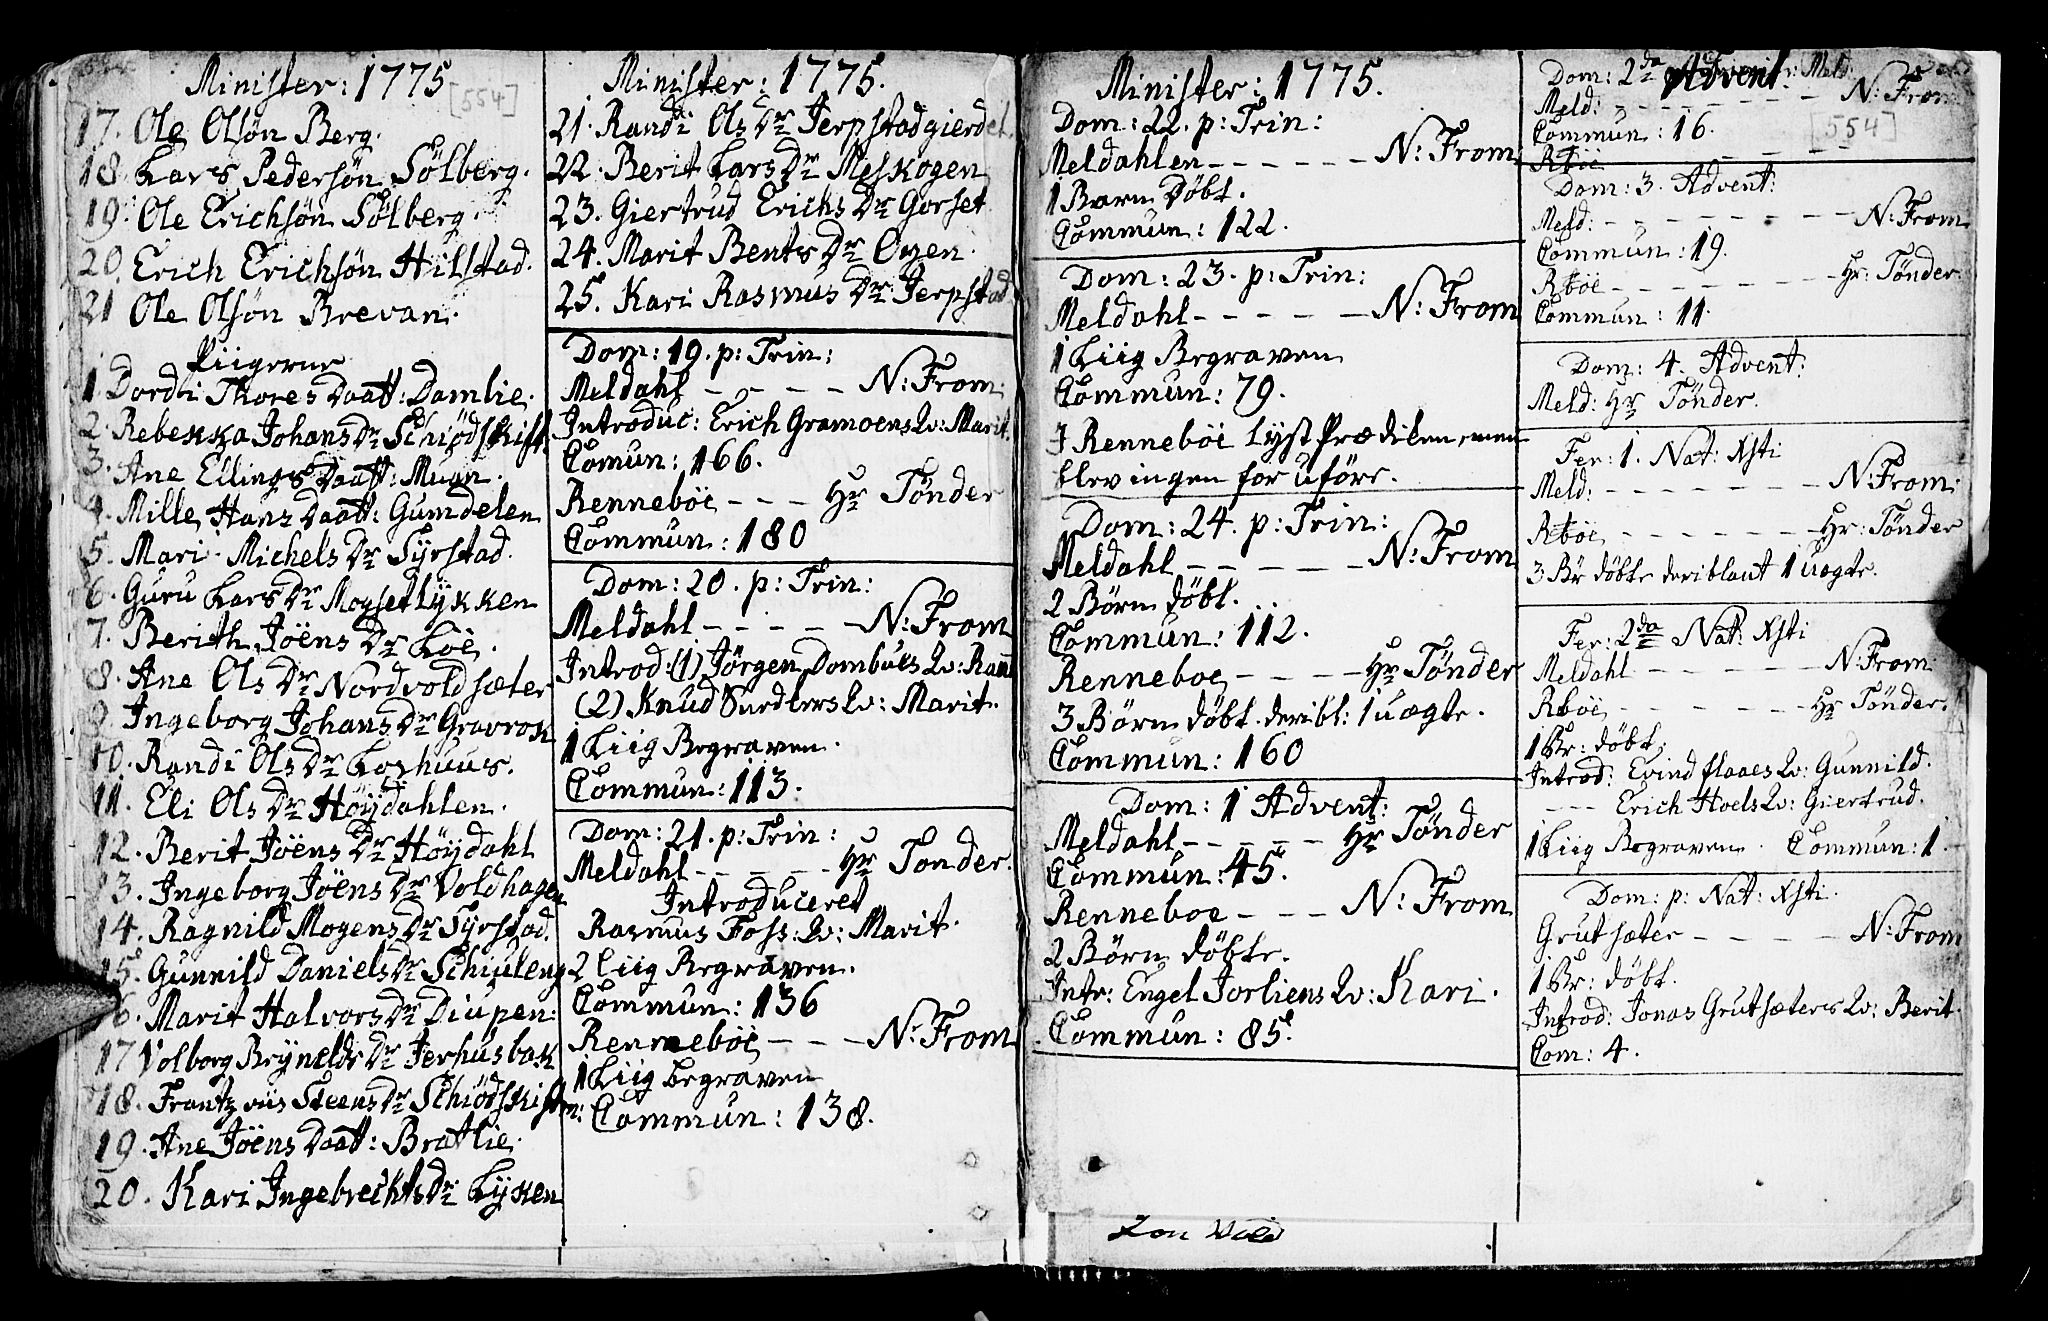 Minister: 1775
[554]
17. Ole Olsön Berg.
18. Lars Pedersön Sölberg.
19. Ole Erichsön Sölberg.
20. Erich Erichsön Hilstad.
21 Ole Olsön Brevan.
Piigerne
1 Dordi Thores Daatt: Damlie.
2. Rebekka Johans Dr Schiödskift.
3. Ane Ellings Daatt: Muan.
4. Mille Hans Daatt: Gumdelen
5. Mari Michels Dr Syrstad.
6. Guru Lars Dr Moysetlykken
7. Berith Jöens Dr Löe.
8. Ane Ols Dr Nordvoldsæter
9. Ingeborg Johans Dr Gravrok
10. Randi Ols Dr Loehuus.
11. Eli Ols Dr Höydahlen.
12. Berit Jöens Dr Höydahl
13. Ingeborg Jöens Dr Voldhagen
14. Ragnild Mogens Dr Syrstad.
15. Gunnild Daniels Dr Schiuleng
16. Marit Halvors Dr Diupen:
17 Volborg Brynelds Dr Jerhusbak
18. Frantz Steens Dr Schiödskift
19. Ane Jöens Daatt: Bratlie.
20. Kari Ingebrechts Dr Lyken
Minister: 1775.
21. Randi Ols Dr Jerpstadgierdet.
22. Berit Lars Dr Meskogen
23. Giertrud Erichs Dr Gorset
24. Marit Bents Dr Oyen.
25. Kari Rasmus Dr Jerpstad
Dom: 19. p: Trin:
Meldahl - - - - N: From.
Introduc: Erich Gramoens Qv: Marit.
Comun: 166.
Renneböe - - - Hr Tönder
Commun: 180
Dom: 20. p: Trin:
Meldahl - - - - - N: From
Introd: (1) Jörgen Dombues Qv:
(2) Knud Qv: Marit.
1 Liig Begraven.
Commun: 113.
Dom: 21. p: Trin:
Meldahl - - - - - Hr Tonder.
Introduceret
Rasmus Foss: Qv: Marit.
2 Liig Begraven.
Commun: 136
Renneböe - - - N: From
1 Liig begraven
Commun: 138.
Minister: 1775.
Dom: 22. p: Trin:
Meldahlen - - - - - - N: From
1 Barn Döbt.
Commun: 122.
Dom: 23. p: Trin:
Meldahl - - - - - N: From
1 Liig Begraven
Commun: 79.
I Renneböe lyst Prædiken, men
blev ingen for Uföre.
Dom: 24. p: Trin:
Meldahl - - - - - N: From
2 Börn döbt.
Commun: 112.
Renneboe - - - - Hr Tönder
3 Börn döbt. deribl: 1 uægte.
Commun: 160
Dom: 1 Advent:
Meldahl - - - - - Hr Tönder
Commun: 45.
Renneboe - - - N: From
2 Börn döbte.
Intr: Engel Jorliens Qv: Kari.
Commun: 85.
Lon
Dom: 2da Advent.
Meld: - - - - - - - N: From
Commun: 16.
[554]
Rböe - - - -
Dom: 3. Advent:
Meld: - - - - - - - N: From
Commun: 19.
Rböe - - - - - - Hr: Tönder.
Commun: 11.
Dom: 4. Advent:
Meld: Hr Tönder.
Fer: 1. Nat: Xsti
Meld: - - - - - - - N: From:
Rböe - - - - - - Hr: Tönder
3 Br döbte deriblant 1 uægte.
Fer: 2da Nat: Xsti
Meldahl - - - - - N: From:
Rböe - - - - - - Hr Tönder.
1 Br: döbt.
Introd: Evind Haaes Qv: Gunnild.
- - - Erich Hoels Qv: Giertrud.
1 Liig Begraven. Commun: 1.
Dom: p: Nat: Xsti.
Grutsæter - - - - - N: From
1 Br: döbt.
Introd: Jonas Grutsæters Qv: Berit.
Com: 4.